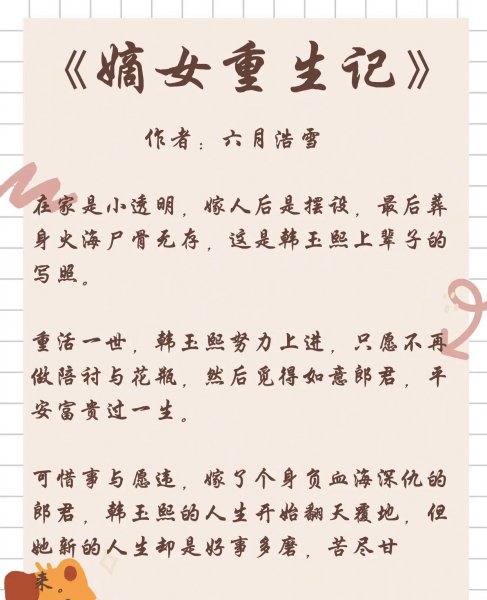 《嫡女重生记》
作者：六月浩雪
在家是小透明，嫁人后是摆设，最后葬
身火海尸骨无存，这是韩玉熙上辈子的
写照。
重活一世，韩玉熙努力上进，只愿不再
做陪衬与花瓶，然后觅得如意郎君，平
安富贵过一生。
可惜事与愿违，嫁了个身负血海深仇的
郎君，韩玉熙的人生开始翻天覆地，但
她新的人生却是好事多磨，苦尽甘
来。